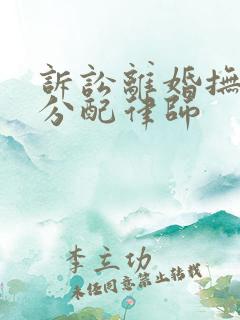 訴訟離婚撫
分配律師
李立功
未經同意禁止轉載